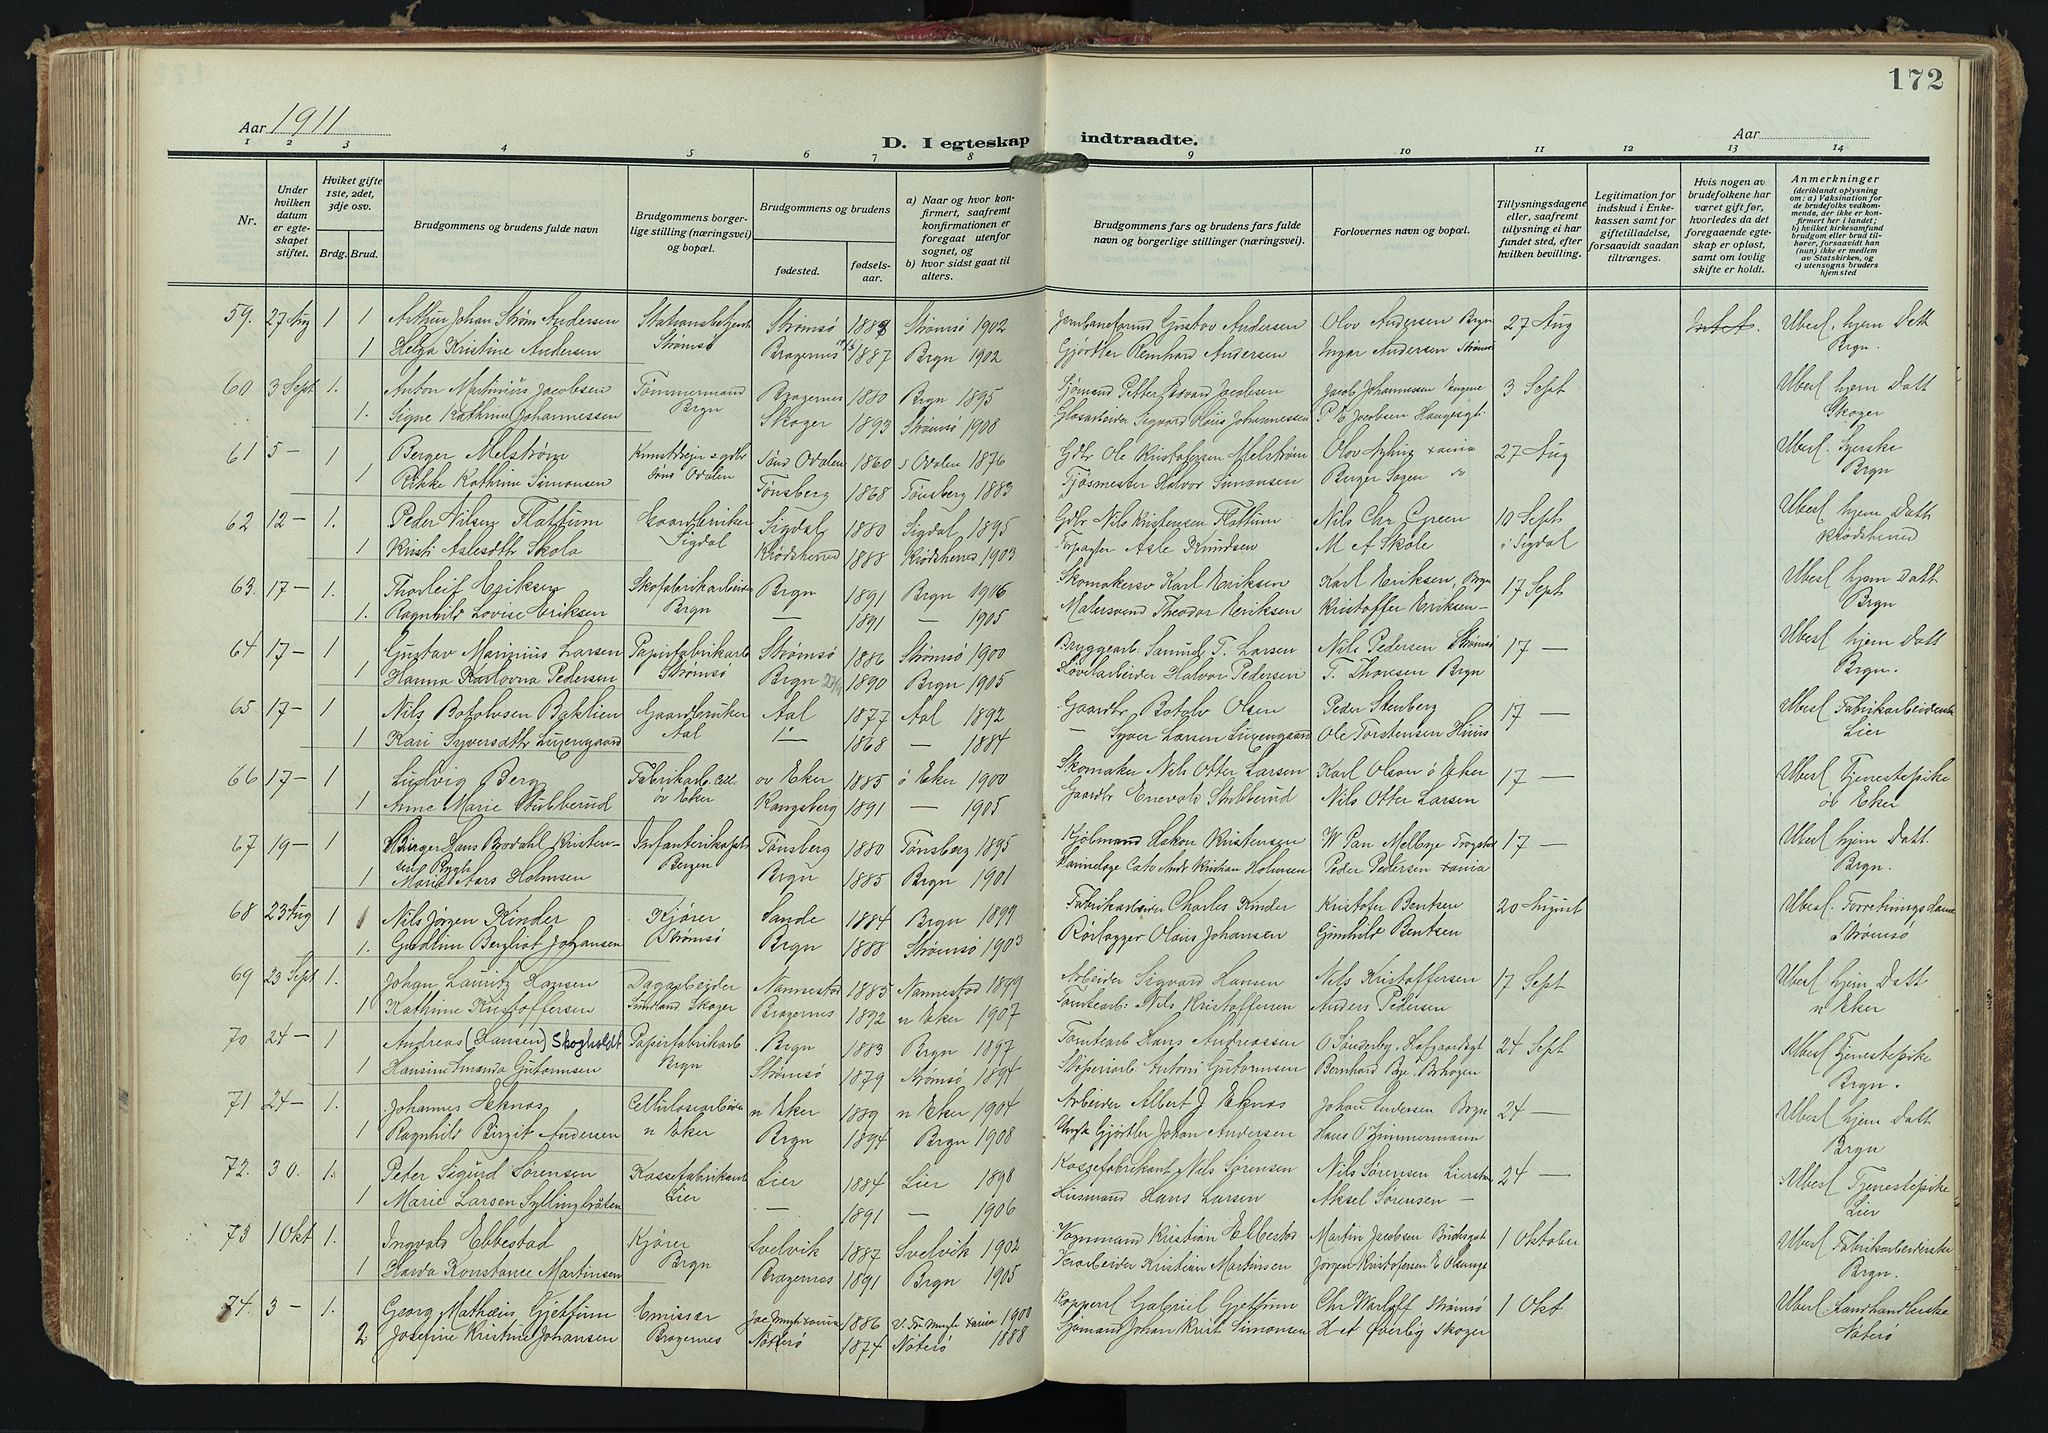 172
Aar 1911
D. I egteskap indtraadte.
Aar
1 2 3 4 5 6 7 8 9 10 11 12 13 14
Nr.
Under hvilken datum er egteskapet stiftet.
Hviket gifte 1ste, 2det, 3dje osv.
Brdg. Brud.
Brudgommens og brudens fulde navn
Brudgommens borgerlige stilling (næringsvei) og bopæl.
Brudgommens og brudens
fødested.
fødselsaar.
a) Naar og hvor konfirmert, saafremt konfirmationen er foregaat utenfor sognet, og
b) hvor sidst gaat til alters.
Brudgommens fars og brudens fars fulde navn og borgerlige stillinger (næringsvei).
Forlovernes navn og bopæl.
Tillysningsdagene eller, saafremt tillysning ei har fundet sted, efter hvilken bevilling.
Legitimation for indskud i Enkekassen samt for giftetilladelse, forsaavidt saadan tiltrænges.
Hvis nogen av brudefolkene har været gift før, hvorledes da det foregaaende egteskap er opløst, samt om lovlig skifte er holdt.
Anmerkninger (deriblandt oplysning om: a) Vaksination for de brudefolks vedkommende, der ikke er konfirmert her i landet; b) hvilket kirkesamfund brudgom eller brud tilhører, forsaavidt han (hun) ikke er medlem av Statskirken, og c) utensogns bruders hjemsted
59. 27 Aug 1 1 Arthur Johan Strøm Andersen Strømsø Strømsø 1902 Gustav Andersen Olav Andersen Brgn 27 Aug Uberl. hjem Datt
1 Helga Kristine Andersen Strømsø Bragernes 1887 Brgn 1902 Gjørtler Reinhard Andersen Ingar Andersen Strømsø Brgn.
60 3 Sept 1. Anton Martinius Jacobsen Tømmermand Bragernes 1880 Brgn 1895 Sjømand Petter Jacobsen Jacob Johannessen 3 Sept Uberl hjem Datt
1. Signe Kathrine Johannessen Brgn Skoger 1893 Strømsø 1908 Glasarbeider Sigvard Johannessen P. E. Jacobsen Haugesgt. Skoger
61 5 — 1 Berger Melstrøm Sønd Odalen 1860 s Odalen 1876 Gdbr Ole Kristofersen Melstrøm Olav 27 Aug Uberl.
1 Rikke Kathrine Simonsen Sønd Odalen Tønsberg 1868 Tønsberg 1883 Halvor Simonsen Berger Brgn
62 12 — 1. Peder Nilsen Flattum Gaardbruker Sigdal 1880 Sigdal 1895 Gdbr Nils Kristensen Flattum Nils Chr Green 10 Sept Uberl hjem Datt
1 Kristi Aslesdtr Skola Sigdal Krødsherred 1888 Krødsherred 1903 Forpagter Asle Knudsen M A Skole i Sigdal Krødsherred
63. 17 — 1. Thorleif Eriksen Skofabrikarbeider Brgn 1891 Brgn Karl Eriksen Karl Eriksen, Brgn 17 Sept Uberl hjem Datt
1. Ragnhild Lovise Eriksen Brgn — 1891 — 1905 Malersvend Theodor Eriksen Kristoffer Eriksen — Brgn
64 17 — 1 Gustav Marinius Larsen Papirfabrikarb Strømsø 1886 Strømsø 1900 Bryggearb. Samuel T. Larsen Nils Pedersen Strømsø 17 — Uberl hjem Datt
1 Hanna Karlovna Pedersen Strømsø Brgn 1890 Brgn 1905 Høvelarbeider Halvor Pedersen T. Thoresen Brgn Brgn.
65 17 — 1 Nils Botolvsen Baklien Gaardbruker Aal 1877 Aal 1892 Gaardbr Botolv Olsen Peder Stenberg 17 — Uberl Fabrikarbeiderske
1 Kari Syversdtr Aal 1868 — 1884 — Syver Larsen Ole Torstensen Huus Lier
66 17 — 1 Ludvig Berg Fabrikarb. Cell. øv Eker 1885 ø Eker 1900 Skomaker Nils Otter Larsen Karl Olson ø Eker 17 — Uberl Tjenestepike
1 Anne Marie Stubberud øv Eker Kongsberg 1891 — 1905 Gaardbr Enevald Stubberud Nils Otter Larsen øv Eker
67 19 — 1 Birger Hans Brodahl Kristensen Rygh Infanterikapt Tønsberg 1880 Tønsberg 1895 Kjøbmand Hakon Kristensen W Pan Melbye 17 — Uberl hjem Datt.
1 Marie Aars Holmsen Bergen Brgn 1885 Brgn 1901 Cato Andr Kristian Holmsen Peder Pedersen Brgn.
68 23 Aug 1 1 Nils Jørgen Kinder Kjører Sande 1884 Brgn 1899 Fabrikarbeider Charles Kinder Kristofer Bentsen 20 August Uberl. Forretningsdame
1. Gudlim Bergliot Johansen Strømsø Brgn 1888 Strømsø 1903 Rørlægger Olaus Johansen Gunhild Bentsen Strømsø
69 23 Sept 1. Johan Lauritz Hansen Dagarbeider Nannestad 1885 Nannestad 1899 Arbeider Sigvard Hansen Nils Kristoffersen 17 Sept Uberl hjem Datt
1 Kathrine Kristoffersen Sundland Skoger Bragernes 1892 n Eker 1907 Tomtearb. Nils Kristoffersen Anders Pedersen n Eker
70 24 — 1 Andreas (Hansen) Skogholdt Papirfabrikarb Brgn 1883 Brgn 1897 Tomtearb Hans Andreassen O Sønderby 24 Sept Uberl Tjenestepike
1 Hansine Amanda Gutormsen Brgn Strømsø 1879 Strømsø 1894 Antoni Gutormsen Bernhard Brgn.
71 24 — 1. Johannes Eknæs Cellulosearbeider n Eker 1889 n Eker 1904 Arbeider Albert J Eknæs Johan Andersen Brgn 24 — Uberl hjem Datt
1 Ragnhild Birgit Andersen n Eker Brgn 1894 Brgn 1908 Gjørtler Johan Andersen Hans O Zimmermann Brgn
72. 30. 1. Peder Sigurd Sørensen Kassefabrikarb Lier 1884 Lier 1898 Kassefabrikant Nils Sørensen Nils Sørensen 24 — Uberl Tjenestepike
1 Marie Larsen Syllingbråten Lier — 1891 — 1906 Husmand Hans Larsen Aksel Sørensen — Lier
73 1 Okt 1. Ingvald Ebbestad Kjører Svelvik 1887 Svelvik 1902 Vognmand Kristian Ebbestad Martin Jacobsen 1 Oktober Uberl Fabrikarbeiderske
1 Harda Konstance Martinsen Brgn Bragernes 1891 Brgn 1905 Kristian Martinsen Jørgen Kristofersen Brgn.
74. 3 — 1. Georg Mathæus Gjetfum Emissær 1886 1900 Gabriel Gjetfum Chr Warloff Strømsø 1 Okt Uberl. Landhandlerske
2 Josefine Kristine Johansen Bragernes Nøterø 1874 Nøterø 1888 Sjømand Johan Krist Simonsen H et Øverlig Skoger Nøterø